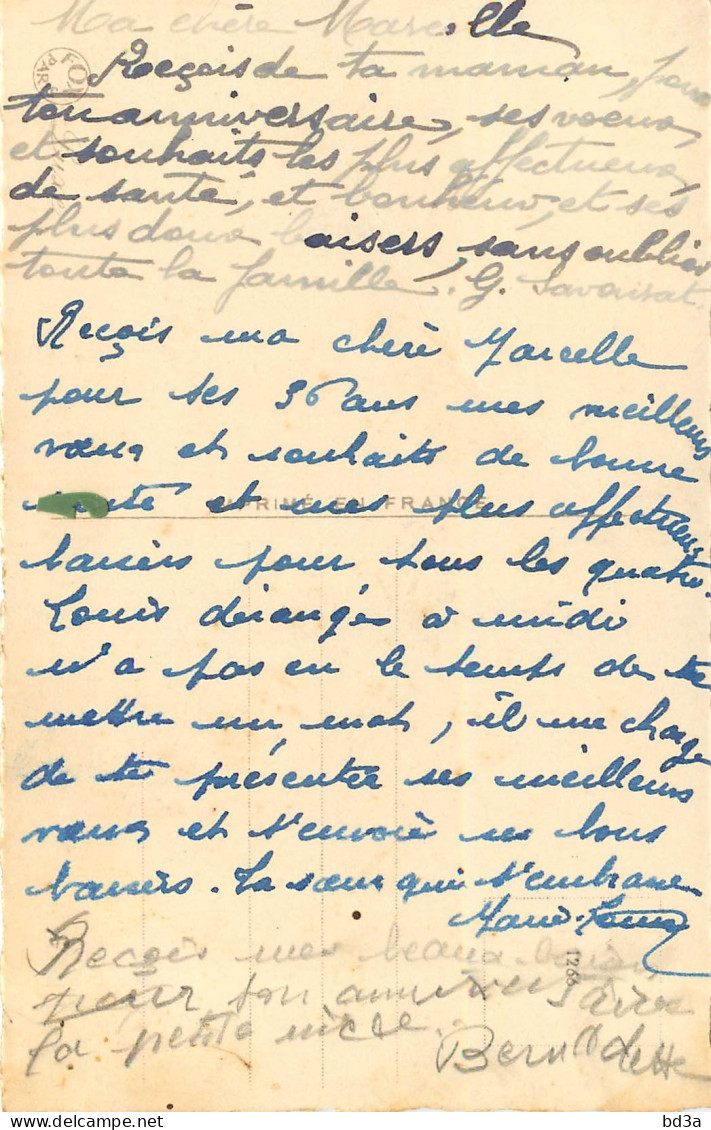 Ma chère Marcelle
Reçois de ta maman, pour
ton anniversaire, ses voeux,
et souhaits les plus affectueux,
de santé, et bonheur, et ses
plus doux baisers, sans oublier
toute la famille. G.
Reçois ma chère Marcelle
pour tes 36 ans mes meilleurs
vœux et souhaits de bonne
santé et mes plus affectueux
IMPRIMÉ EN FRANCE
baisers pour tous les quatre.
Louis dérangé à midi
n'a pas eu le temps de te
mettre un mot, il me charge
de te présenter ses meilleurs
vœux et t'envoie ses bons
baisers. Ta sœur qui t'embrasse
Marie-
Reçois mes beaux baisers
pour ton anniversaire
ta petite nièce.
Bernadette
1266
bd3a